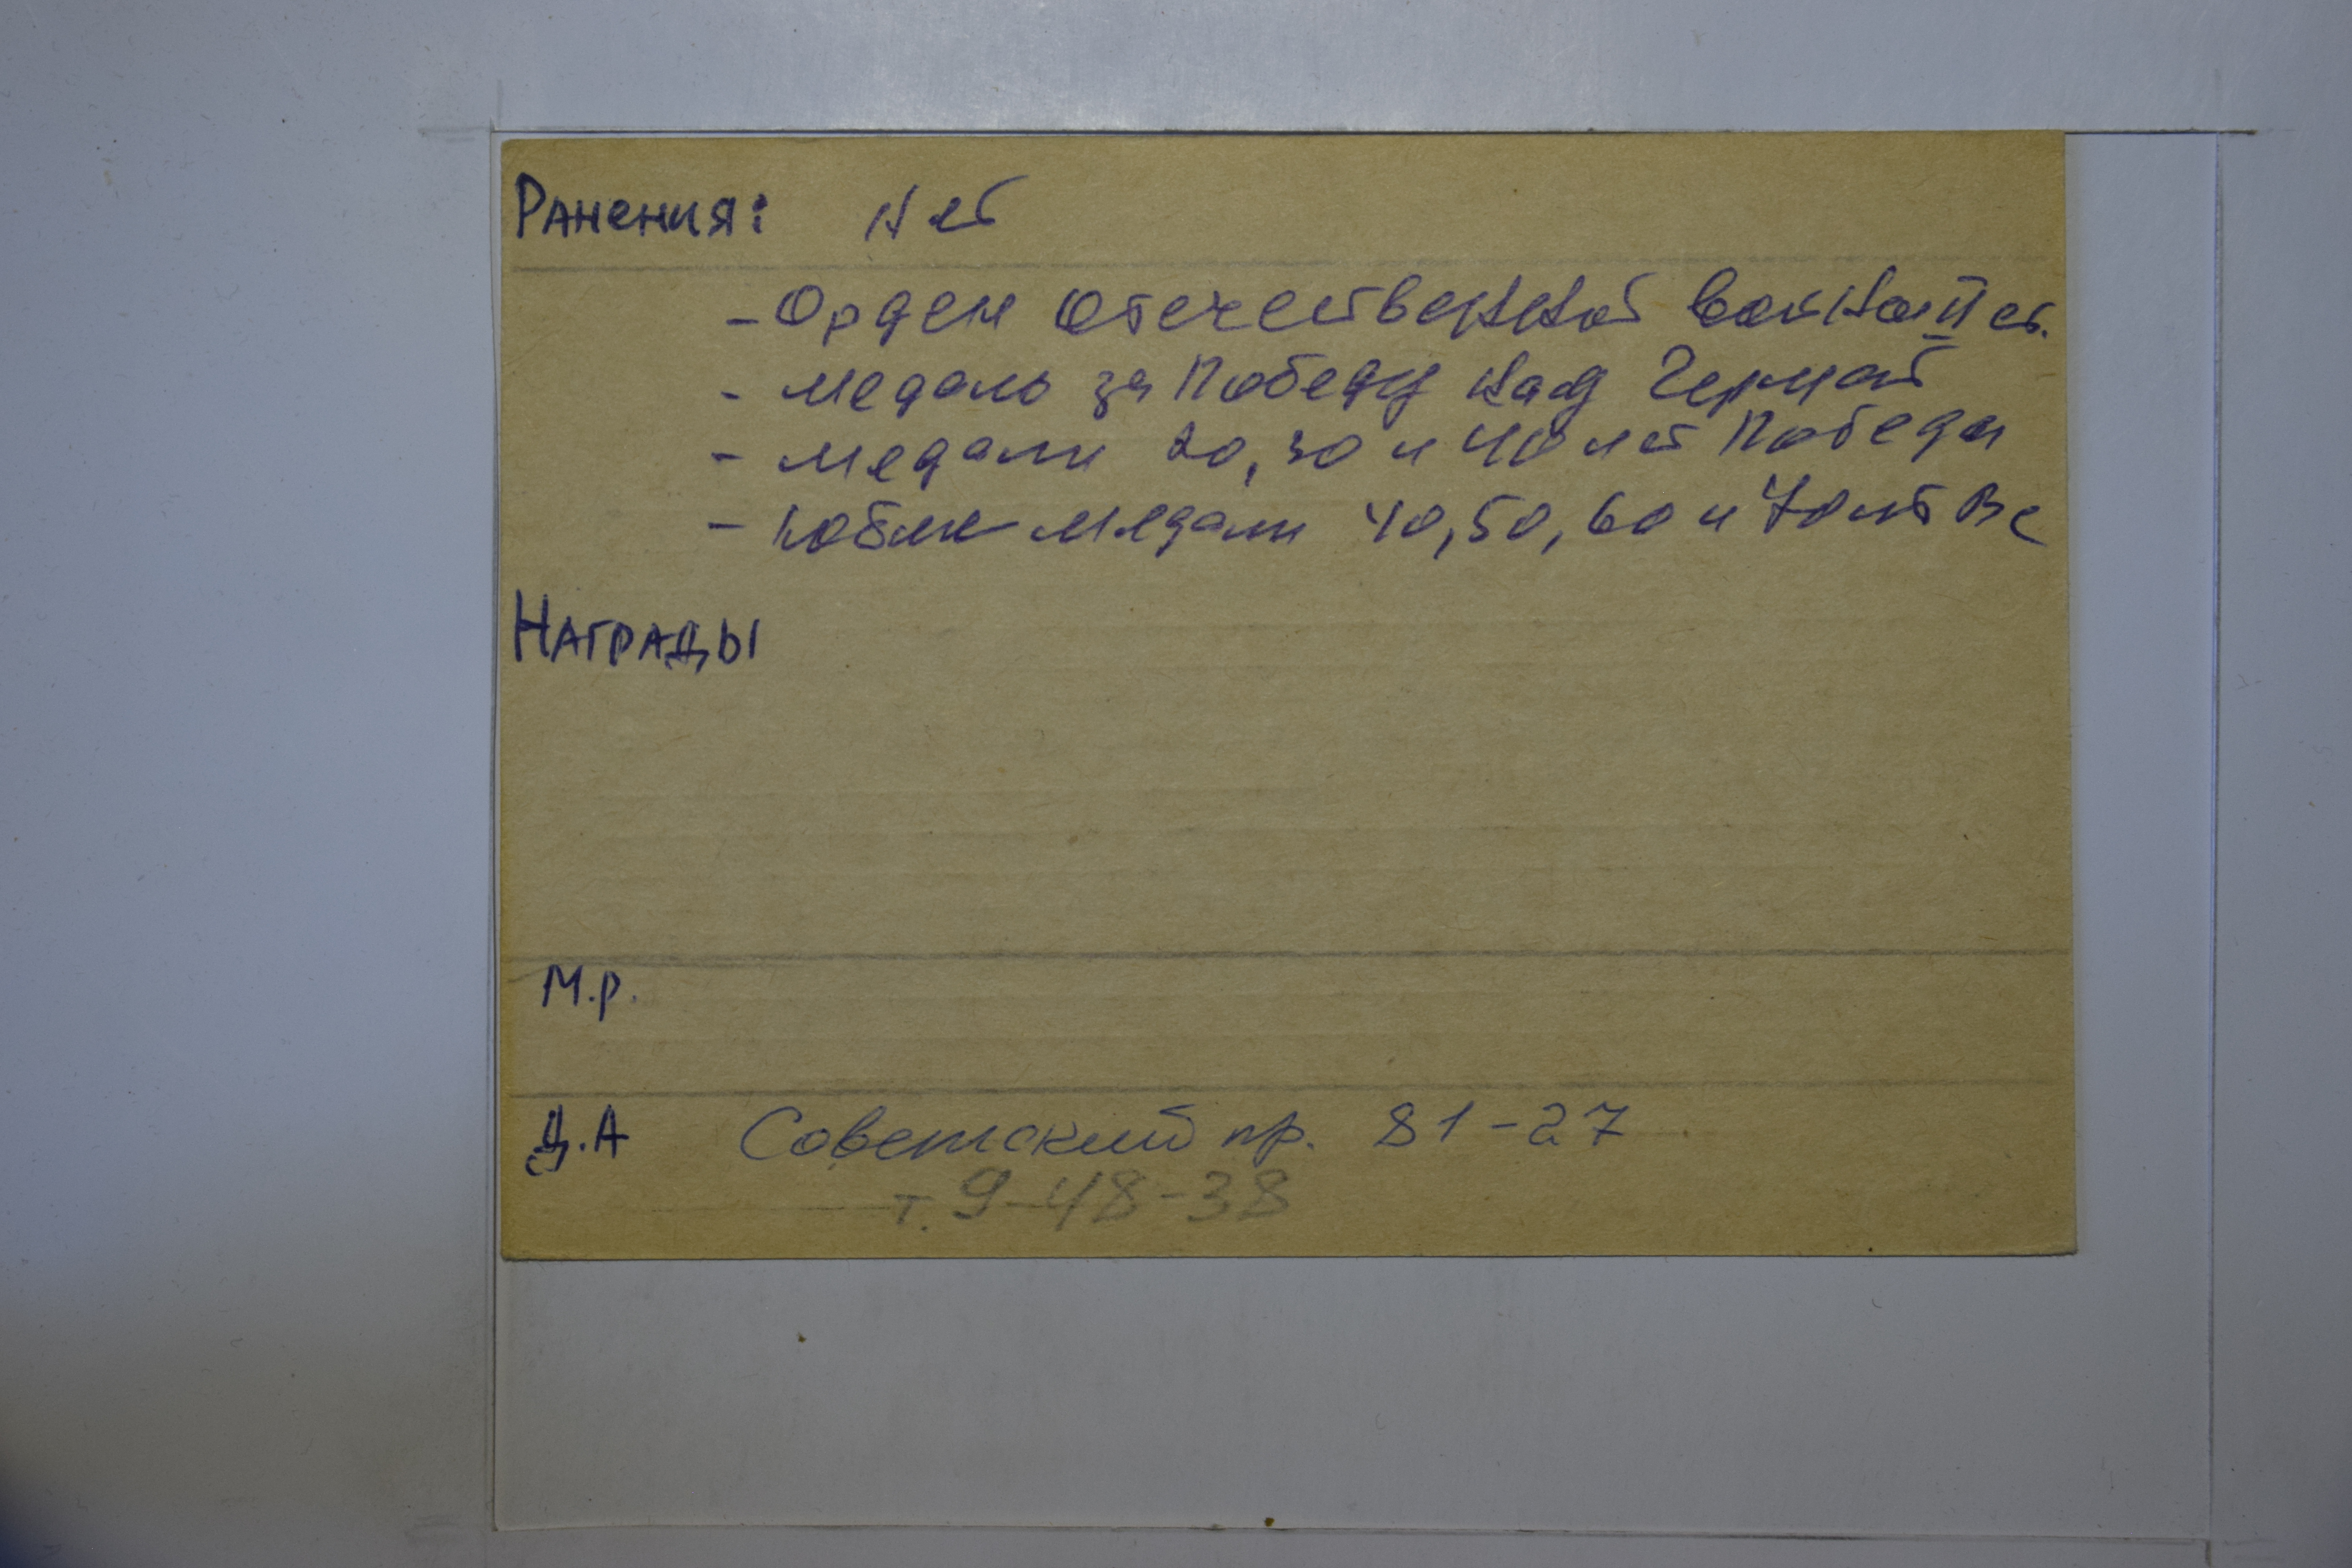 Ранения: Нет
- Орден Отечественной войны II ст.
- медаль за Победу над Герма̄й
- медали 20, 30 и 40 лет Победы
- юбил медали 40, 50, 60 и 70 лет ВС
Награды
М.р.
Д.А Советский пр. 81-27
т. 9-48-38